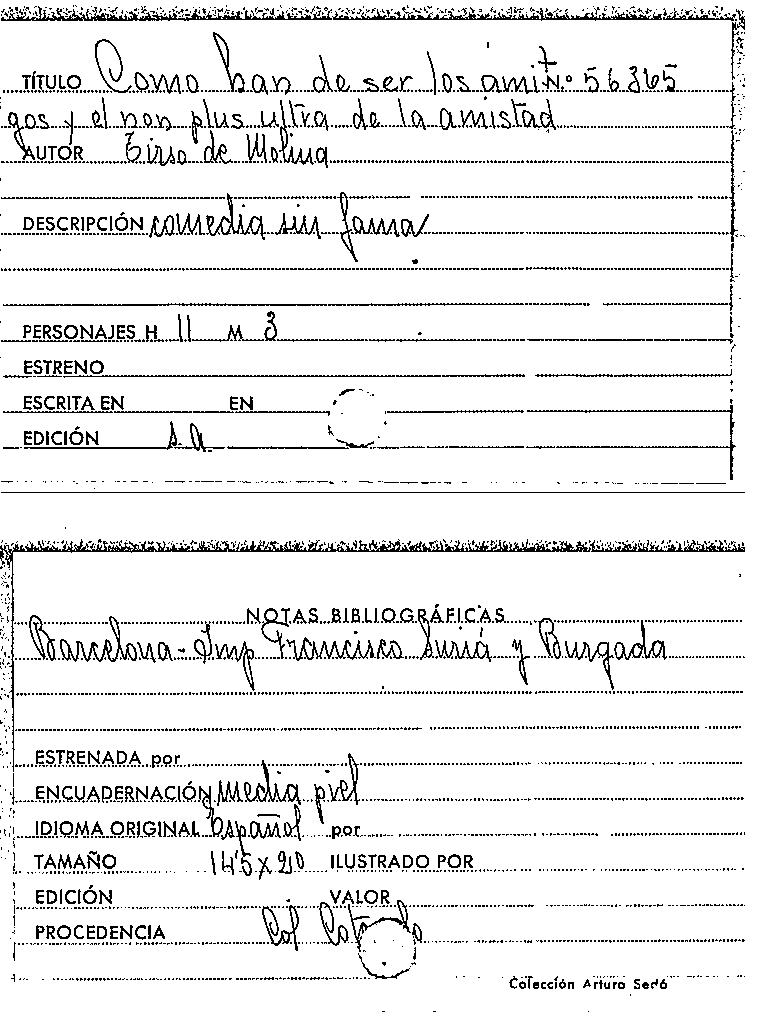 TÍTULO Como han de ser los ami N.º 56365
gos y el non plus ultra de la amistad
AUTOR Tirso de Molina
DESCRIPCIÓN comedia sin fama
PERSONAJES H 11 M 3
ESTRENO
ESCRITA EN EN
EDICIÓN s.a.
NOTAS BIBLIOGRÁFICAS
Barcelona - Imp Francisco Suriá y Burgada
ESTRENADA por
ENCUADERNACIÓN media piel
IDIOMA ORIGINAL Español por
TAMAÑO 14'5 x 20 ILUSTRADO POR
EDICIÓN VALOR
PROCEDENCIA Col
Colección Arturo Sedó